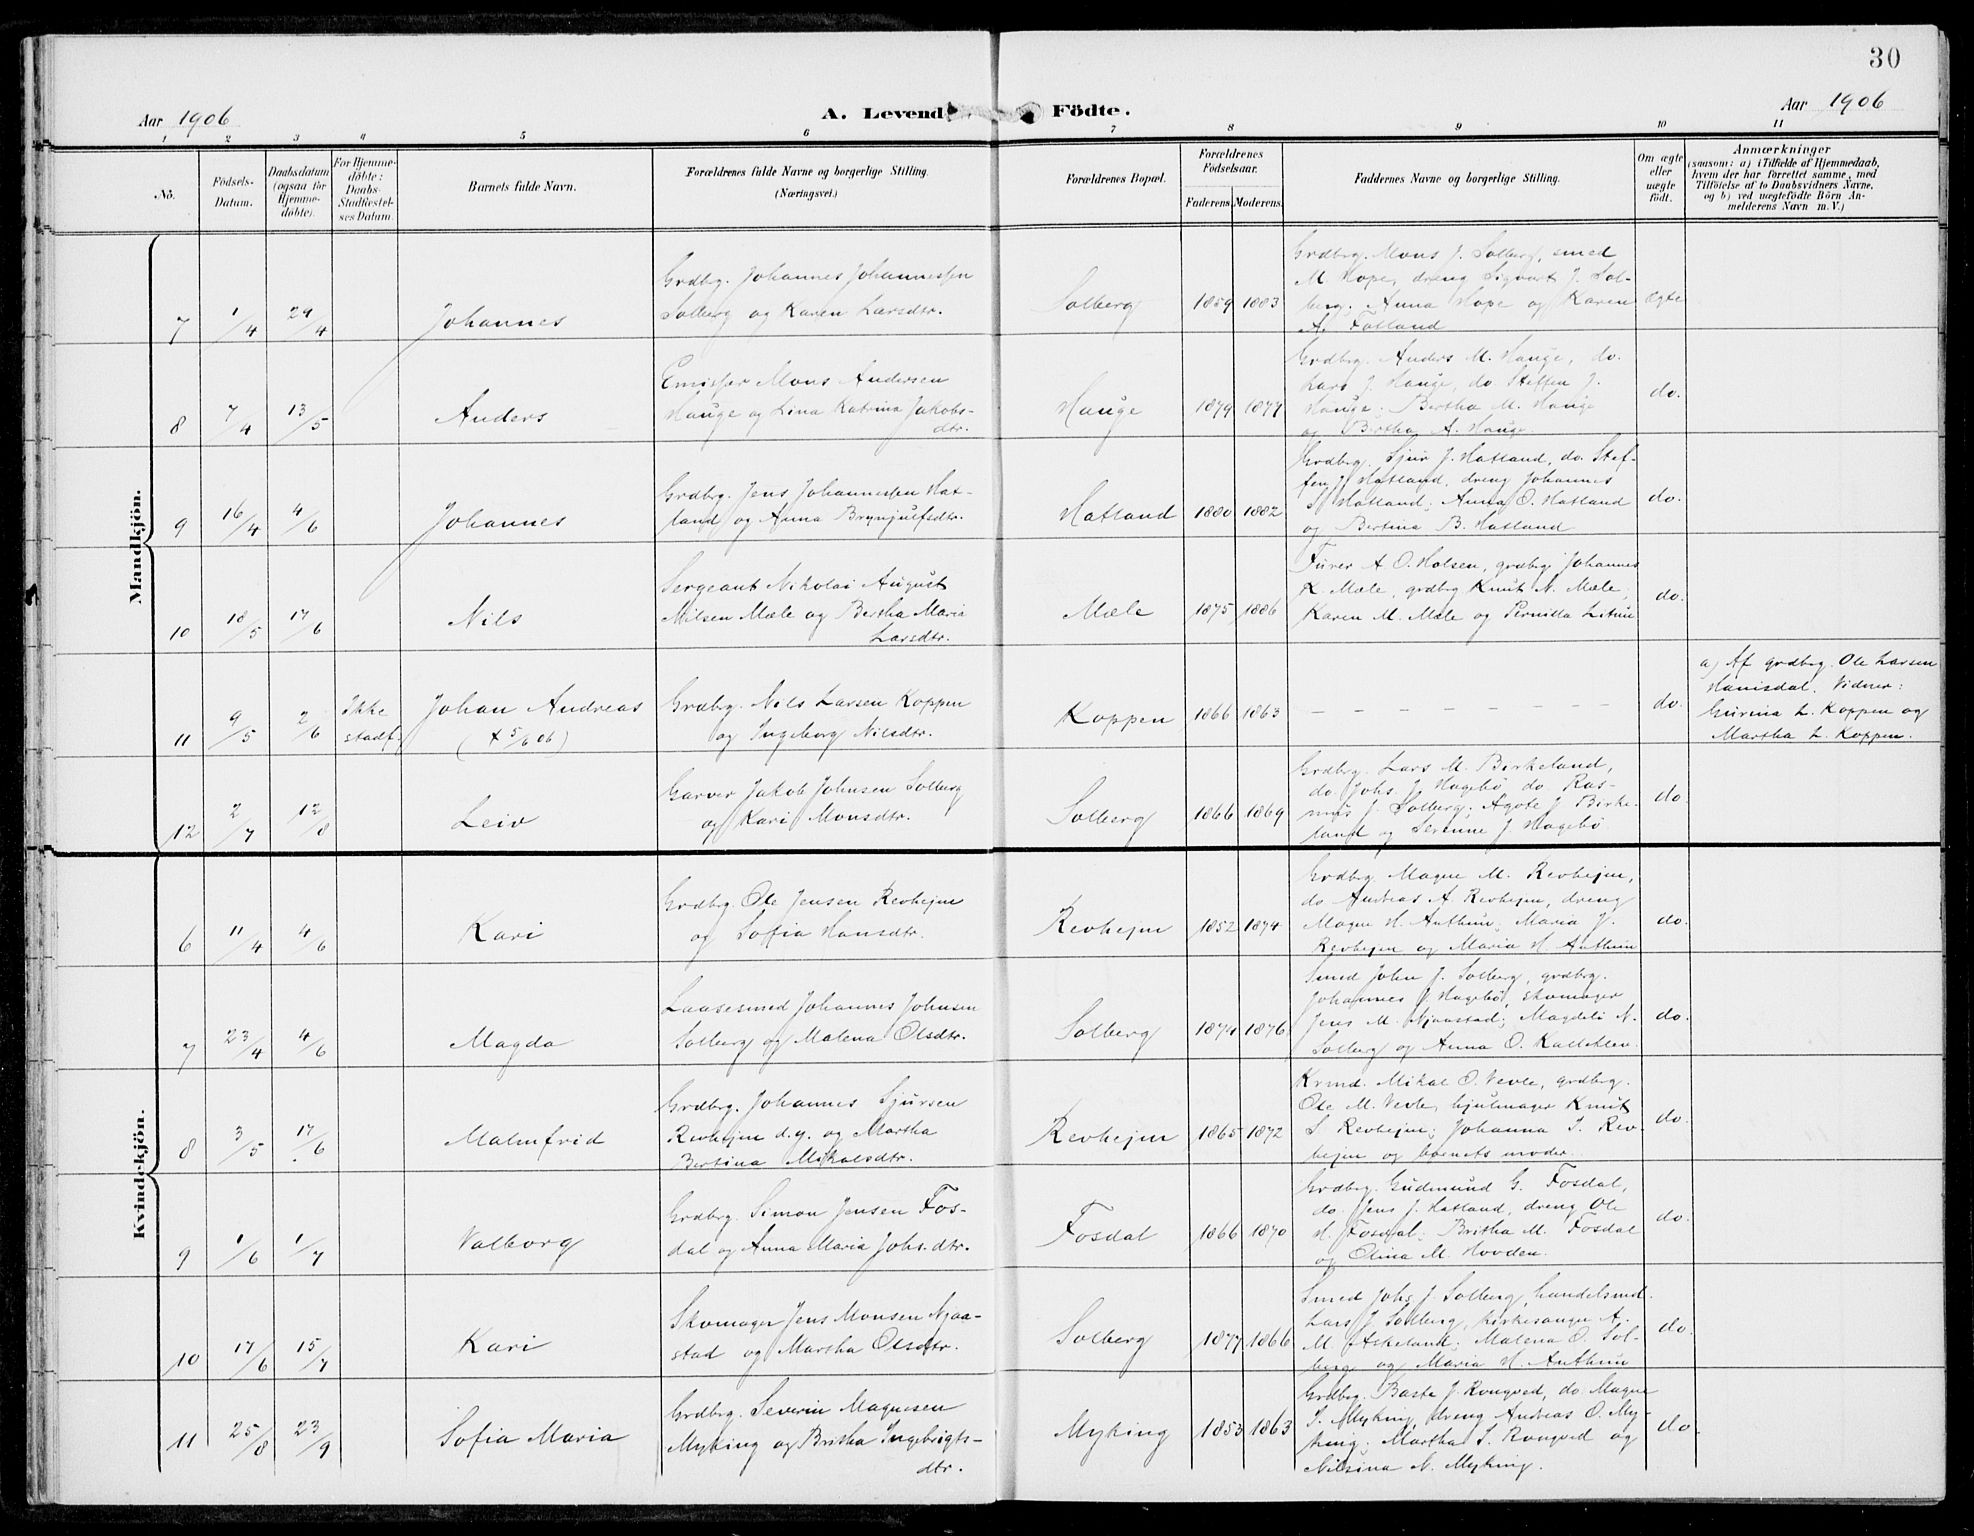 30
Aar 1906
A. Levende Födte.
Aar 1906
1 2 3 4 5 6 7 8 9 10 11
No.
Födsels-Datum.
Daabsdatum (ogsaa for Hjemme-döbte).
For Hjemme-döbte: Daabs-Stadfæstel-ses Datum.
Barnets fulde Navn.
Forældrenes fulde Navne og borgerlige Stilling.
(Næringsvei.)
Forældrenes Bopæl.
Forældrenes Födselsaar.
Faderens. Moderens.
Faddernes Navne og borgerlige Stilling.
Om ægte eller uægte födt.
Anmærkninger
(saasom: a) i Tilfælde af Hjemmedaab,
hvem der har forrettet samme, med
Tilföielse af to Daabsvidners Navne,
og b) ved uægtefödte Börn An-
melderens Navn m. V.)
Mandkjön.
7 1/4 29/4 Johannes
Grdbrg. Johannes Johannessen
Solberg og Karen Larsdtr.
Solberg 1859 1883
Grdbrg. Mons J. Solberg, smed
M Hope, dreng Sigvart J. Sol-
berg; Anna Hope og Karen
A. Fatland
Ægte
8 7/4 13/5 Anders
Emissær Mons Andersen
Hauge og Lina Katrina Jakobs-
dtr.
Hauge 1879 1877
Grdbrg. Anders M. Hauge, do.
Lars J. Hauge, do Steffen J.
Hauge; Bertha M. Hauge
og Bertha A. Hauge.
do.
9 16/4 4/6 Johannes
Grdbrg. Jens Johannessen Hat-
land og Anna Brynjulfsdtr.
Hatland 1880 1882
Grdbrg. Sjur J. Hatland, do. Stef-
fen J. Hatland, dreng Johannes
S. Hatland; Anna O. Hatland
og Bertina B. Hatland
do.
10 18/5 17/6 Nils
Sergeant Nikolai August
Nilsen Mæle og Bertha Maria
Larsdtr.
Mæle 1875 1886
Furer A O. Holsen, grdbrg Johannes
K. Mæle, grdbrg Knut N. Mæle;
Karen M. Mæle og Pernilla L.
do.
11 9/5 2/6 Ikke stadf. Johan Andreas
(† 5/6 06)
Grdbrg. Nils Larsen Koppen
og Ingeborg Nilsdtr.
Koppen 1866 1863
— — — — — — — —
do.
a) Af grdbrg. Ole Larsen
Hanisdal. Vidner:
Gurina L. Koppen og
Martha L. Koppen.
12 2/7 12/8 Leiv
Garver Jakob Johnsen Solberg
og Kari Monsdtr.
Solberg 1866 1869
Grdbrg. Lars M. Birkeland,
do Johs. J. Hagebö, do Ras-
mus J. Solberg. Agote J Birke-
land og Serinne J Hagebö
do.
Kvindekjön.
6 11/4 4/6 Kari
Grdbrg. Ole Jensen Revhejm
og Sofia Hansdtr.
Revhejm 1852 1874
Grdbrg Magne M. Revhejm,
do Andreas A. Revhejm, dreng
Magne H. Anthun; Maria J.
Revhejm og Maria H. Anthun
do.
7 23/4 4/6 Magda
Laasesmed Johannes Johnsen
Solberg og Malena Olsdtr.
Solberg 1874 1876
Smed John J. Solberg, grdbrg.
Johannes J Hagebö, skomager
Jens M. Njaastad; Magdeli N.
Solberg og Anna O. Kalleklev.
do.
8 3/5 17/6 Malmfrid
Grdbrg. Johannes Sjursen
Revhejm d.y. og Martha
Bertina Mikalsdtr.
Revhejm 1865 1872
Krmd. Mikal O. Vevle, grdbrg.
Ole M. Vevle, hjulmager Knut
S Revhejm; Johanna S. Rev-
hejm og barnets moder.
do.
9 1/6 1/7 Valborg
Grdbrg. Simon Jensen Fos-
dal og Anna Maria Johs.dtr.
Fosdal 1866 1870
Grdbrg. Gudmund G. Fosdal,
do. Jens J. Hatland, dreng Ole
H. Fosdal; Britha M. Fosdal
og Olina M. Hovden.
do.
10 17/6 15/7 Kari
Skomager Jens Monsen Njaa-
stad og Martha Olsdtr.
Solberg 1877 1866
Smed Johs J. Solberg, handelsmd.
Lars J Solberg, kirkesanger A.
M. Askeland; Malena O. Sol-
berg og Maria H. Anthun
do.
11 25/8 23/9 Sofia Maria
Grdbrg. Severin Magnesen
Myking og Britha Ingebrigts-
dtr.
Myking 1853 1863
Grdbrg. Baste J. Rongved, do. Magne
S. Myking, dreng Andreas O. My-
king; Martha S. Rongved og
Nilsina N. Myking.
do.